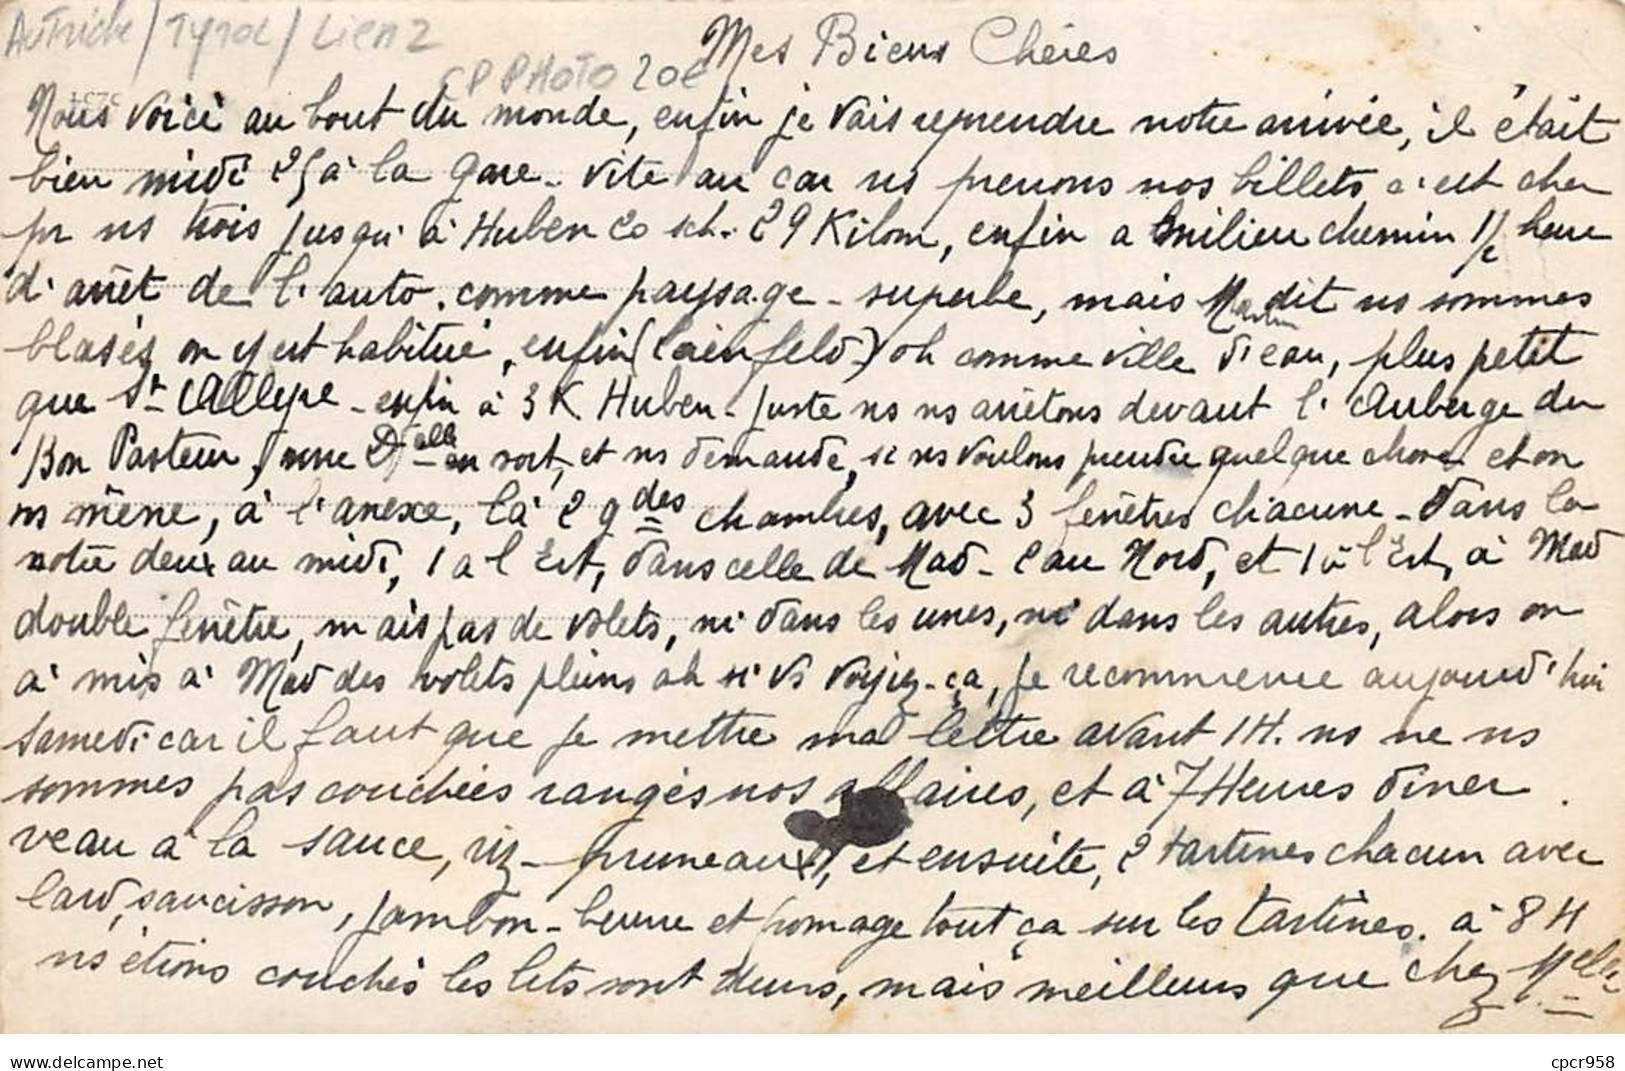 Autriche / Tyrol / Lienz
CP PHOTO 20€
Mes Biens Chères
Nous voici au bout du monde, enfin je vais reprendre notre arrivée, il était
bien midi 25 à la gare - vite au car ns prenons nos billets c'est cher
pr ns trois jusqu'à Huben 20 sch. 29 Kilom, enfin a milieu chemin 1/2 heure
d'arrêt de l'auto. comme paysage - superbe, mais dit ns sommes
blasés on y est habitué, enfin ( ) oh comme ville d'eau, plus petit
que St - enfin à 3 K Huben - juste ns ns arrêtons devant l'Auberge du
Bon Pasteur, une Delle en sort, et ns demande, si ns voulons prendre quelque chose et on
ns mène, à l'anexe, là 2 gdes chambres, avec 3 fenêtres chacune - Dans la
notre deux au midi, 1 a l'Est, dans celle de Mad - 2 au Nord, et 1 à l'Est, à Mad
double fenêtre, mais pas de volets, ni dans les unes, ni dans les autres, alors on
à mis à Mad des volets pleins ah si vs voyiez - ça, Je recommence aujourd'hui
samedi car il faut que je mette ma lettre avant 1H. ns ne ns
sommes pas couchées rangés nos affaires, et à 7 Heures diner.
veau à la sauce, riz - pruneaux, et ensuite, 2 tartines chacun avec
lard, saucisson, jambon - beurre et fromage tout ça sur les tartines. à 8 H
ns étions couchés les lits sont durs, mais meilleurs que chez Melle
cpcr958